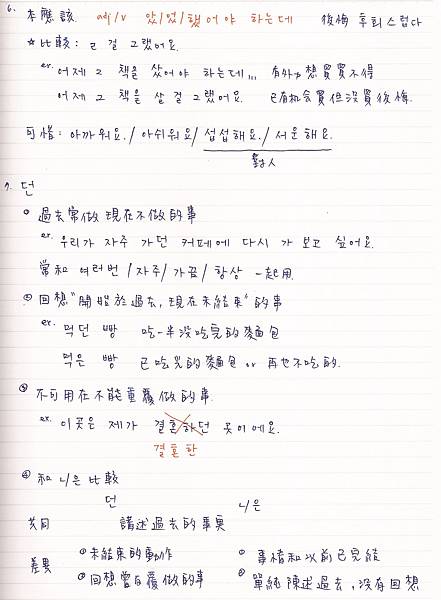 6. 本應該 adj/v 았/었/했어야 하는데 後悔 후회스럽다
☆比較: ㄹ 걸 그랬어요.
ex. 어제 그 책을 샀어야 하는데,,, 有外力想買買不得
어제 그 책을 살 걸 그랬어요. 已有机会買但没買後悔.
可惜: 아까워요. / 아쉬워요 / 섭섭해요. / 서운해요.
對人
7. 던
① 過去常做現在不做的事
ex. 우리가 자주 가던 커페에 다시 가 보고 싶어요.
常和 여러번 / 자주 / 가끔 / 항상 一起用
② 回想"開始於過去,現在未結束"的事
ex. 먹던 빵 吃一半没吃完的麵包
먹은 빵 已吃光的麵包 or 再也不吃的.
③ 不可用在不能重覆做的事.
ex. 이곳은 제가 결혼하던 곳이에요.
결혼한
④ 和 ㄴ/은 比較
던 ㄴ/은
共同 講述過去的事実
差異 ①未結束的動作 ① 事情和以前已完結
②回想曾反覆做的事 ② 單純陳述過去,没有回想